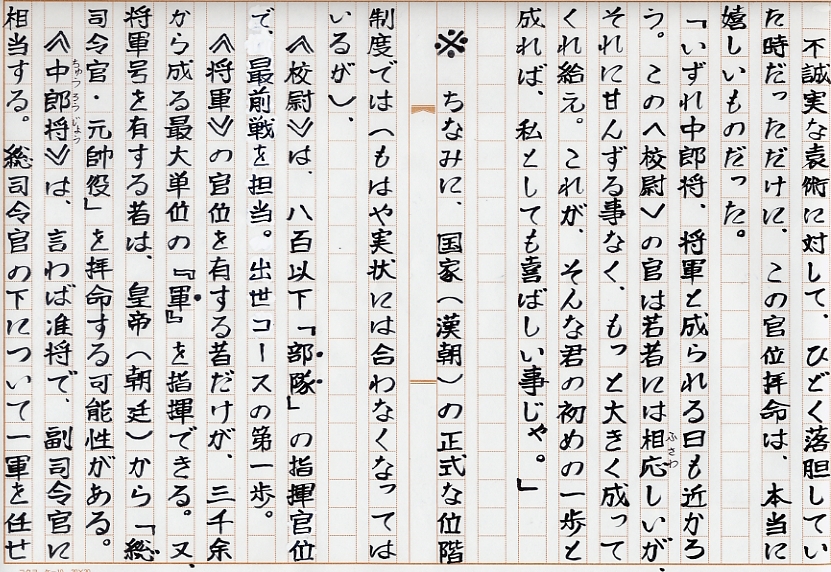 不誠実な袁術に対して、ひどく落胆してい
た時だっただけに、この官位拝命は、本当に
嬉しいものだった。
「いずれ中郎将、将軍と成られる日も近かろ
う。この〈校尉〉の官は若者には相応しいが、
それに甘んずる事なく、もっと大きく成って
くれ給え。これが、そんな君の初めの一歩と
成れば、私としても喜ばしい事じゃ。」
※ ちなみに、国家(漢朝)の正式な位階
制度では(もはや実状には合わなくなっては
いるが)、
《校尉》は、八百以下「部隊」の指揮官位
で、最前戦を担当。出世コースの第一歩。
《将軍》の官位を有する者だけが、三千余
から成る最大単位の『軍』を指揮できる。又、
将軍号を有する者は、皇帝(朝廷)から「総
司令官・元帥役」を拝命する可能性がある。
《中郎将》は、言わば准将で、副司令官に
相当する。総司令官の下について一軍を任せ